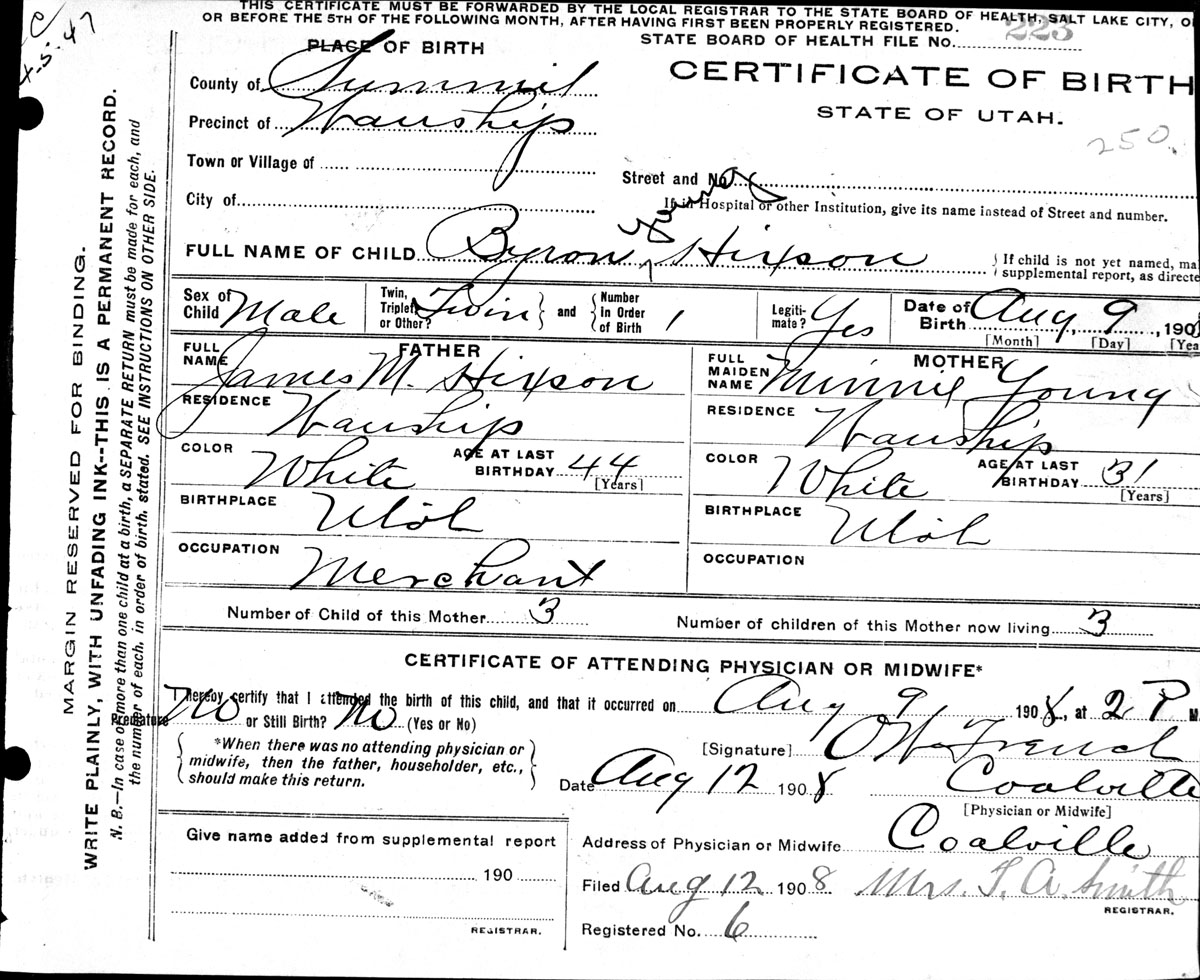 THIS CERTIFICATE MUST BE FORWARDED BY THE LOCAL REGISTRAR TO THE STATE BOARD OF HEALTH, SALT LAKE CITY, O
OR BEFORE THE 5TH OF THE FOLLOWING MONTH, AFTER HAVING FIRST BEEN PROPERLY REGISTERED.
STATE BOARD OF HEALTH FILE No. 223
4-5-47
PLACE OF BIRTH
CERTIFICATE OF BIRTH
STATE OF UTAH.
250.
County of Summit
Precinct of Wanship
Town or Village of
City of
Street and No.
If in Hospital or other Institution, give its name instead of Street and number.
FULL NAME OF CHILD Byron Young Hixson
If child is not yet named, ma
supplemental report, as directe
Sex of Child Male
Twin, Triplet, or Other? Twin and Number in Order of Birth 1
Legiti-mate? Yes
Date of Birth Aug, 9, 1908
[Month] [Day] [Yea
FATHER
FULL NAME James M. Hixson
RESIDENCE Wanship
COLOR White AGE AT LAST BIRTHDAY 44
[Years]
BIRTHPLACE Utah
OCCUPATION Merchant
MOTHER
FULL MAIDEN NAME Minnie Young
RESIDENCE Wanship
COLOR White AGE AT LAST BIRTHDAY 31
[Years]
BIRTHPLACE Utah
OCCUPATION
Number of Child of this Mother 3 Number of children of this Mother now living 3
CERTIFICATE OF ATTENDING PHYSICIAN OR MIDWIFE*
I hereby certify that I attended the birth of this child, and that it occurred on Aug 9 1908, at 2 P. M
Premature No or Still Birth? No (Yes or No)
*When there was no attending physician or
midwife, then the father, householder, etc.,
should make this return.
[Signature] O W French
Date Aug 12 1908 Coalville
[Physician or Midwife]
Address of Physician or Midwife Coalville
Give name added from supplemental report
190
REGISTRAR.
Filed Aug 12 1908 Mrs. T. A. Smith
REGISTRAR.
Registered No. 6
MARGIN RESERVED FOR BINDING.
WRITE PLAINLY, WITH UNFADING INK--THIS IS A PERMANENT RECORD.
N. B.—In case of more than one child at a birth, a SEPARATE RETURN must be made for each, and
the number of each, in order of birth, stated. SEE INSTRUCTIONS ON OTHER SIDE.